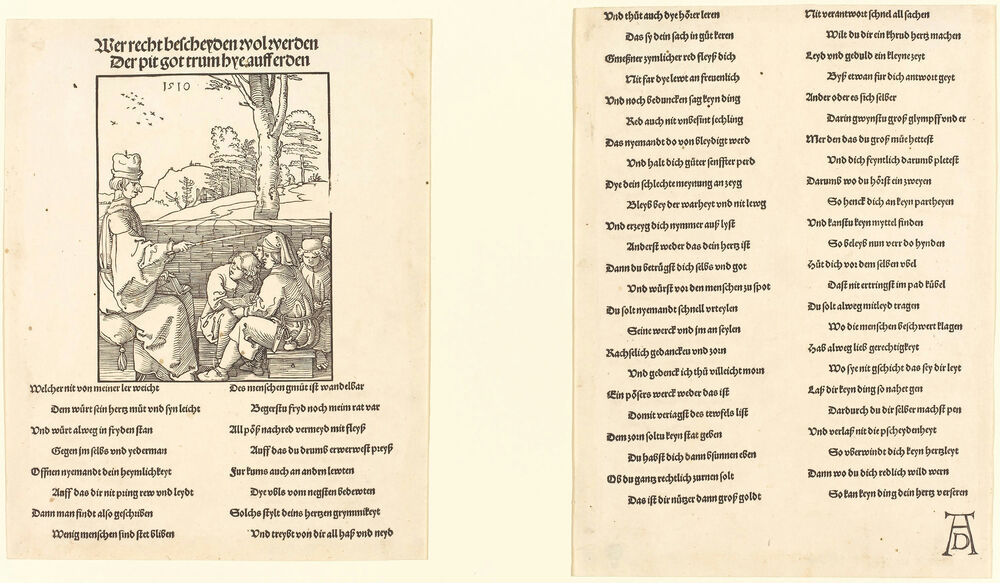 Wer recht bescheyden wol werden
Der pit got trum hye auff erden
1510
Welcher nit von meiner ler weicht
Dem würt sein hertz müt vnd syn leicht
Vnd würt alweg in fryden stan
Gegen im selbs vnd yederman
Offnen nyemandt dein heymlichkeyt
Auff das dir nit pring rew vnd leydt
Dann man findt also geschriben
Wenig menschen sind stet bliben
Des menschen gmüt ist wandelbar
Begerstu fryd noch meim rat var
All pöß nachred vermeyd mit fleyß
Auff das du drumb erwerwest preyß
Fur kums auch an andern lewten
Dye vbls vom negsten bedewten
Solchs stylt deins hertzen grymmikeyt
Vnd treybt von dir all haß vnd neyd
Vnd thüt auch dye hörer leren
Das sy dein sach in güt keren
Gmeßner zymlicher red fleyß dich
Nit far dye lewt an freuenlich
Vnd noch beduncken sag keyn ding
Red auch nit vnbesint jechling
Das nyemandt do von bleydigt werd
Vnd halt dich güter senffter perd
Dye dein schlechte meynung an zeyg
Bleyb bey der warheyt vnd nit lewg
Vnd erzeyg dich nymmer auß lyst
Anderst weder das dein hertz ist
Dann du betrügst dich selbs vnd got
Vnd würst vor den menschen zu spot
Du solt nyemandt schnell vrteylen
Seine werck vnd im an seylen
Rachselich gedancken vnd zorn
Vnd gedenck ich thü villeicht morn
Ein pösers werck weder das ist
Domit veriagst des tewfels list
Dem zorn soltu keyn stat geben
Du habst dich dann bsunnen eben
Ob du gantz rechtlich zurnen solt
Das ist dir nützer dann groß goldt
Nit verantwort schnel all sachen
Wilt du dir ein khrud hertz machen
Leyd vnd geduld ein kleyne zeyt
Byß etwan für dich antwort geyt
Ander oder es sich selber
Darin gwynstu groß glympff vnd er
Mer den das du groß müe hettest
Vnd dich feyntlich darumb pletest
Darumb wo du hörst ein zweyen
So henck dich an keyn partheyen
Vnd kanstu keyn myttel finden
So beleyb nun verr do hynden
Hüt dich vor dem selben vbel
Dast nit ertringst im pad kübel
Du solt alweg mitleyd tragen
Wo die menschen beschwert klagen
Hab alweg lieb gerechtigkeyt
Wo sye nit gschicht das sey dir leyt
Laß dir keyn ding so nahet gen
Dardurch du dir selber machst pen
Vnd verlaß nit die pscheydenheyt
So vberwindt dich keyn hertzleyt
Dann wo du dich redlich wild wern
So kan keyn ding dein hertz verseren
AD